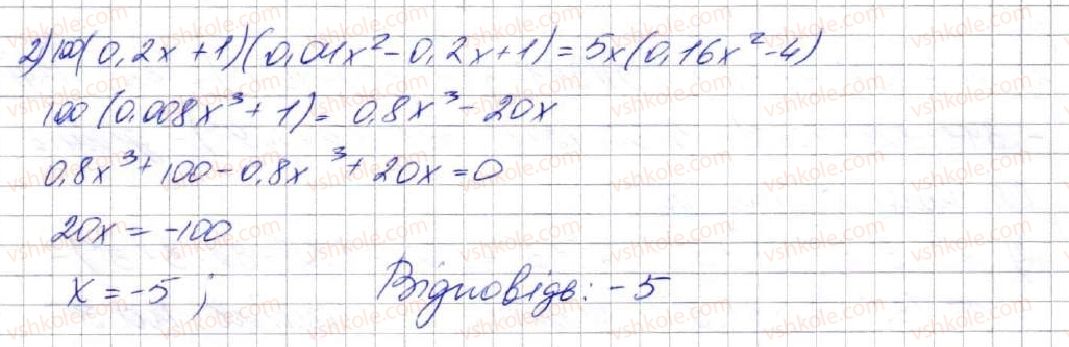 2) 100(0,2x+1)(0,04x²-0,2x+1)=5x(0,16x²-4)
100(0,008x³+1)= 0,8x³-20x
0,8x³+100-0,8x³+20x=0
20x=-100
x=-5; Відповідь: -5